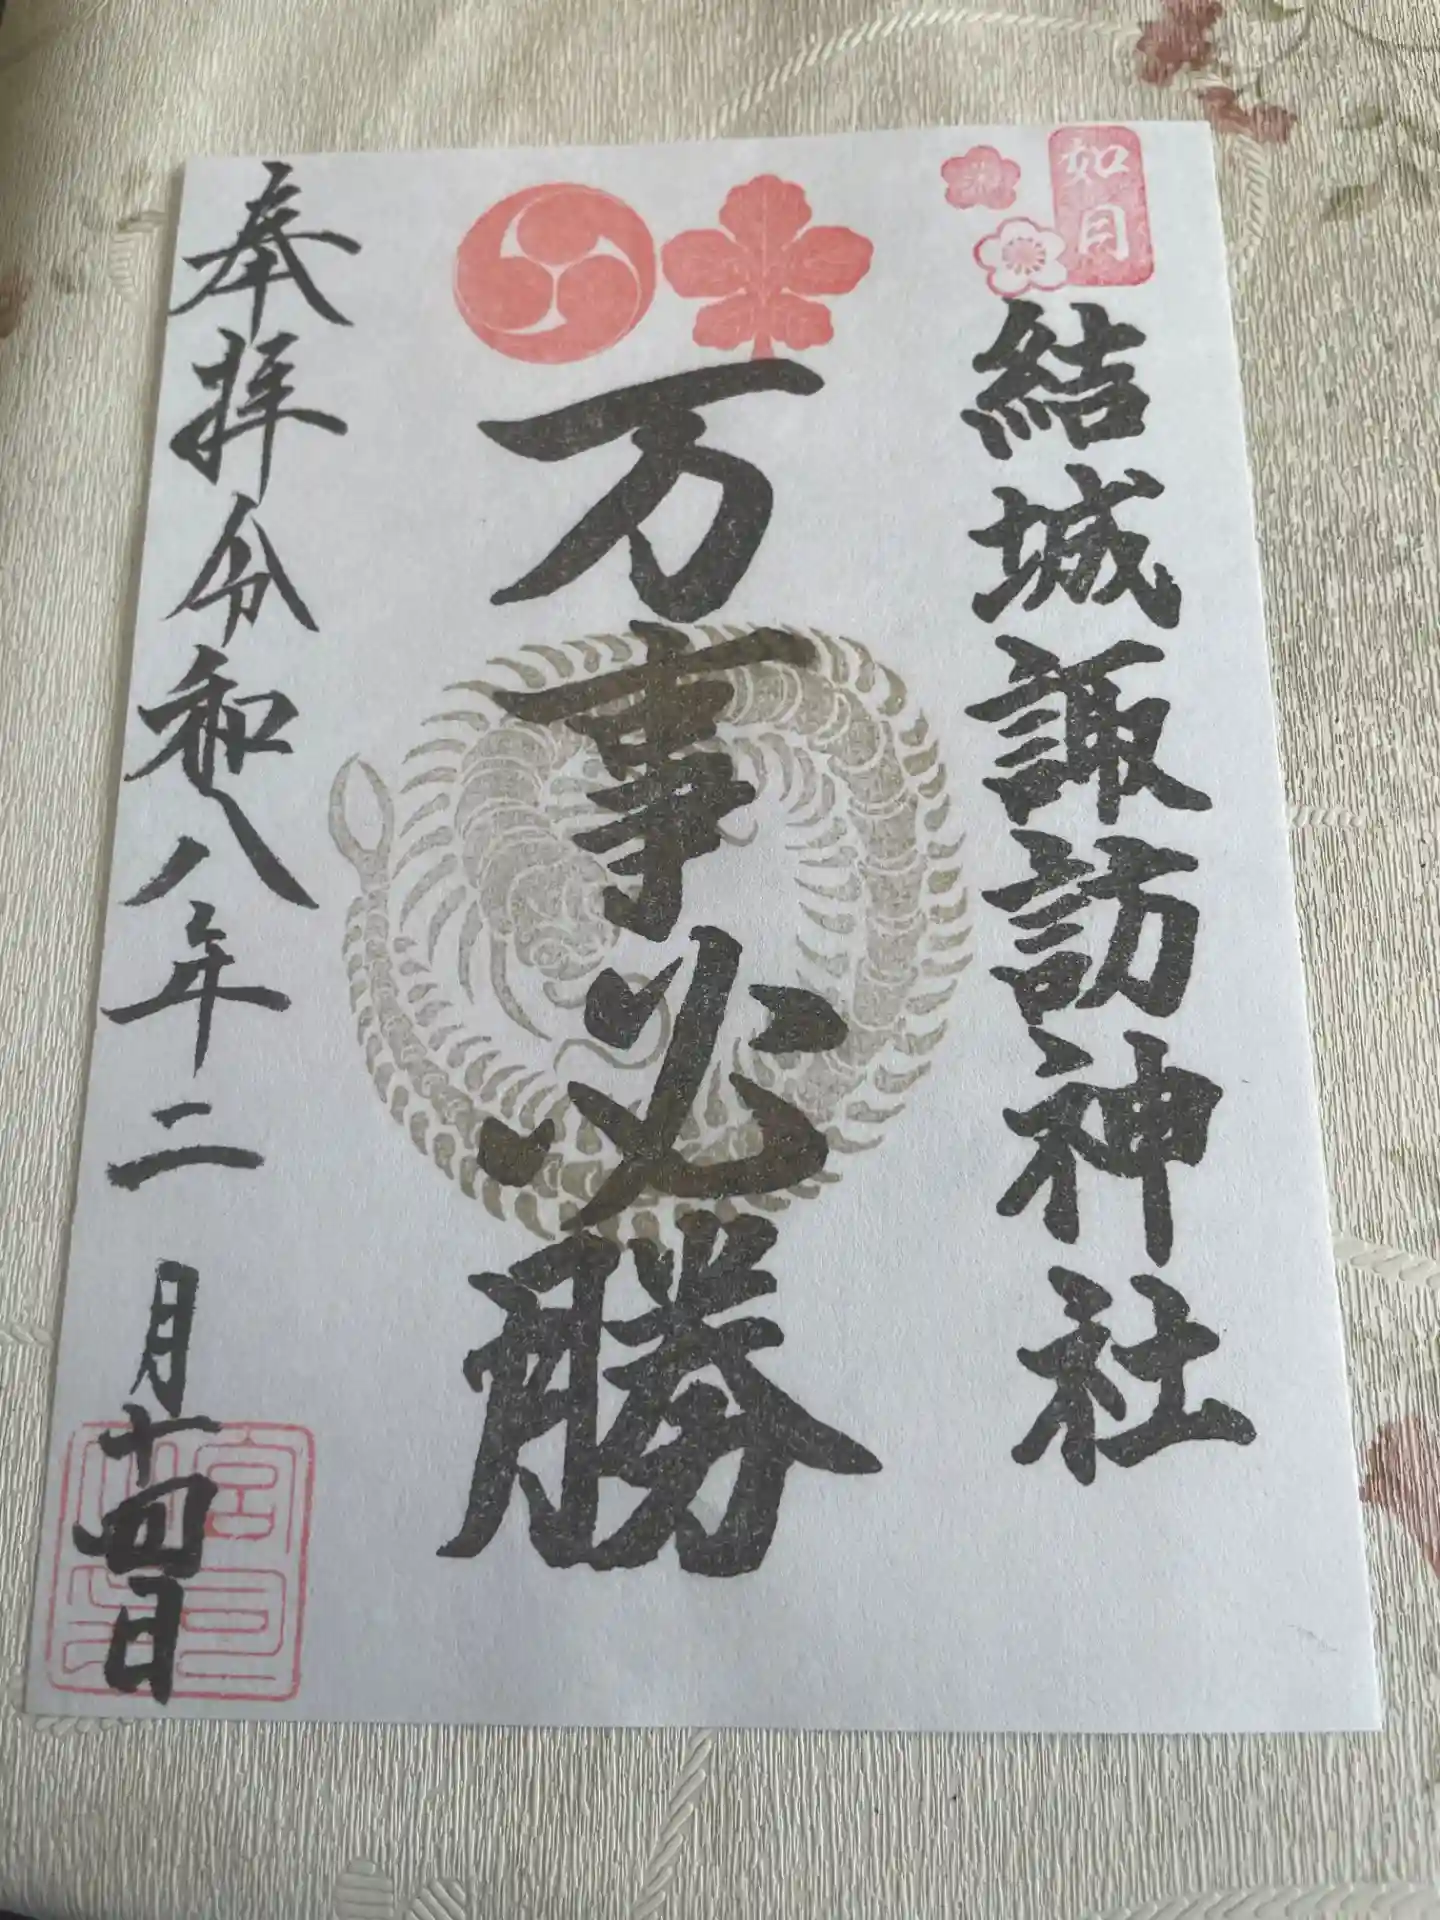 如月
結城諏訪神社
万事必勝
奉拝令和八年二月十四日